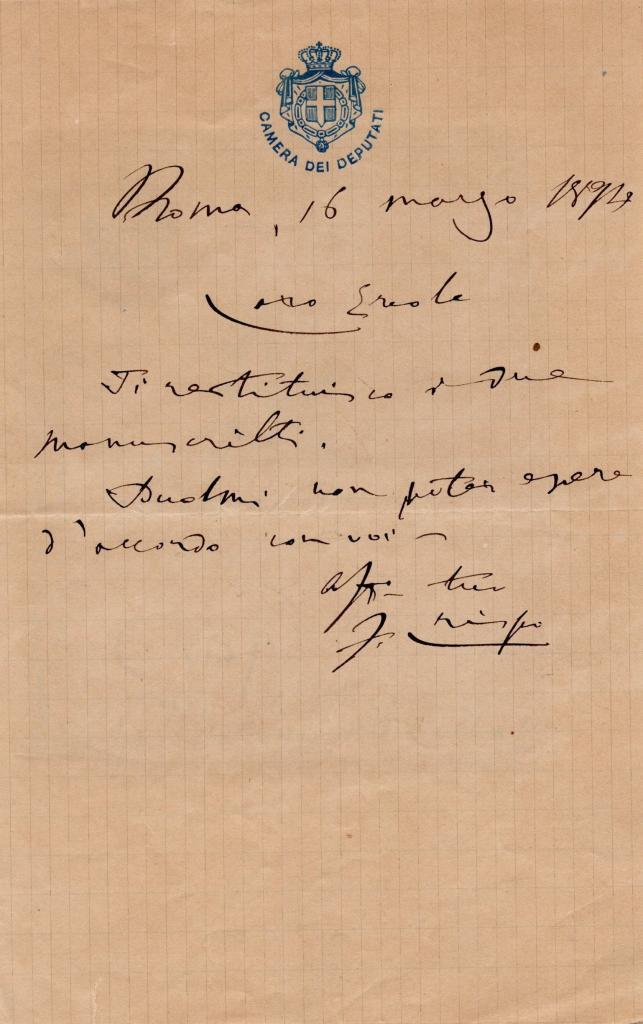 CAMERA DEI DEPUTATI
Roma, 16 marzo 1894
Caro Ercole
Ti restituisco i due
manoscritti.
Duolmi non poter essere
d'accordo con voi —
aff. tuo
F. Crispi